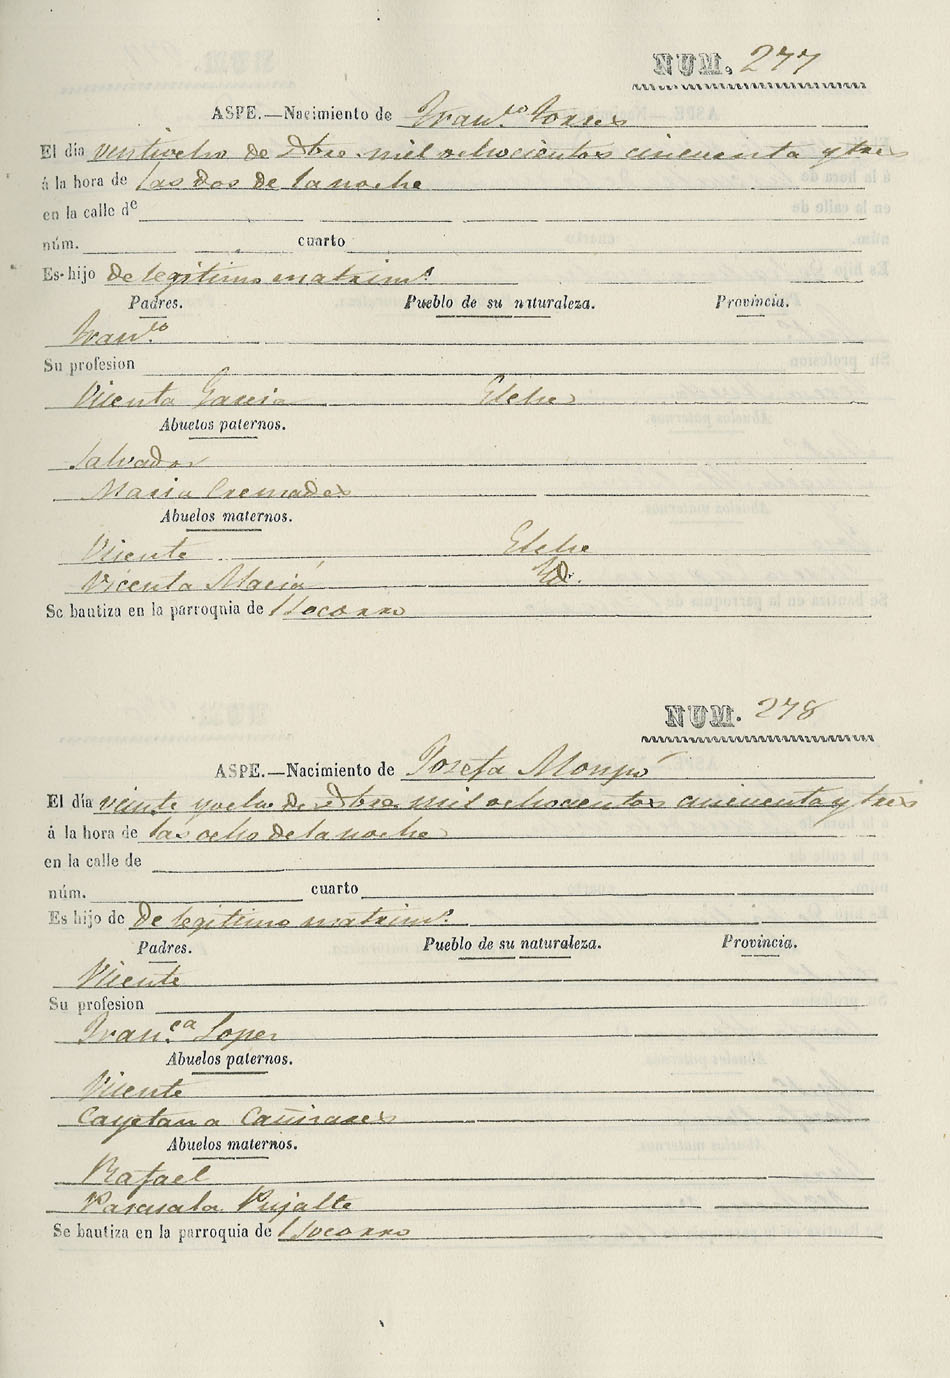 NUM. 277
ASPE.—Nacimiento de Fran.co Torres
El dia ventiocho de Xbre mil ochocientos cincuenta y tres
á la hora de las dos de la noche
en la calle de
núm. cuarto
Es hijo de legitimo matrim.o
Padres. Pueblo de su naturaleza. Provincia.
Fran.co
Su profesion
Vicenta Garcia Elche
Abuelos paternos.
Salvador
Maria Cremades
Abuelos maternos.
Vicente Elche
Vicenta Maciá Id.
Se bautiza en la parroquia de Socorro
NUM. 278
ASPE.—Nacimiento de Josefa Monpó
El dia veinte y ocho de Xbre mil ochocientos cincuenta y tres
á la hora de las ocho de la noche
en la calle de
núm. cuarto
Es hijo de de legitimo matrim.o
Padres. Pueblo de su naturaleza. Provincia.
Vicente
Su profesion
Fran.ca Lopez
Abuelos paternos.
Vicente
Cayetana Cañizares
Abuelos maternos.
Rafael
Pascuala Pujalte
Se bautiza en la parroquia de Socorro